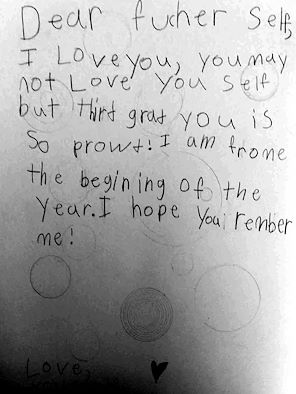 Dear fucher Self,
I Love you, you may
not Love you self
but third grad you is
So prowt! I am frome
the begining of the
Year. I hope you rember
me!
Love,